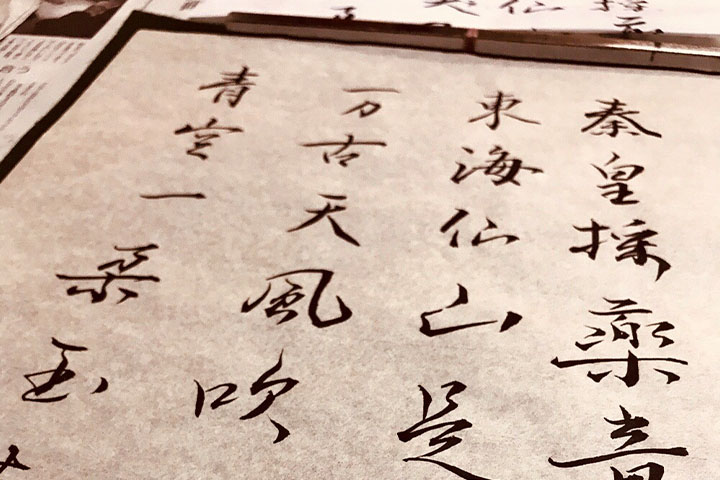 秦皇採藥竟
東海仙山是
万古天風吹
青空一朶玉